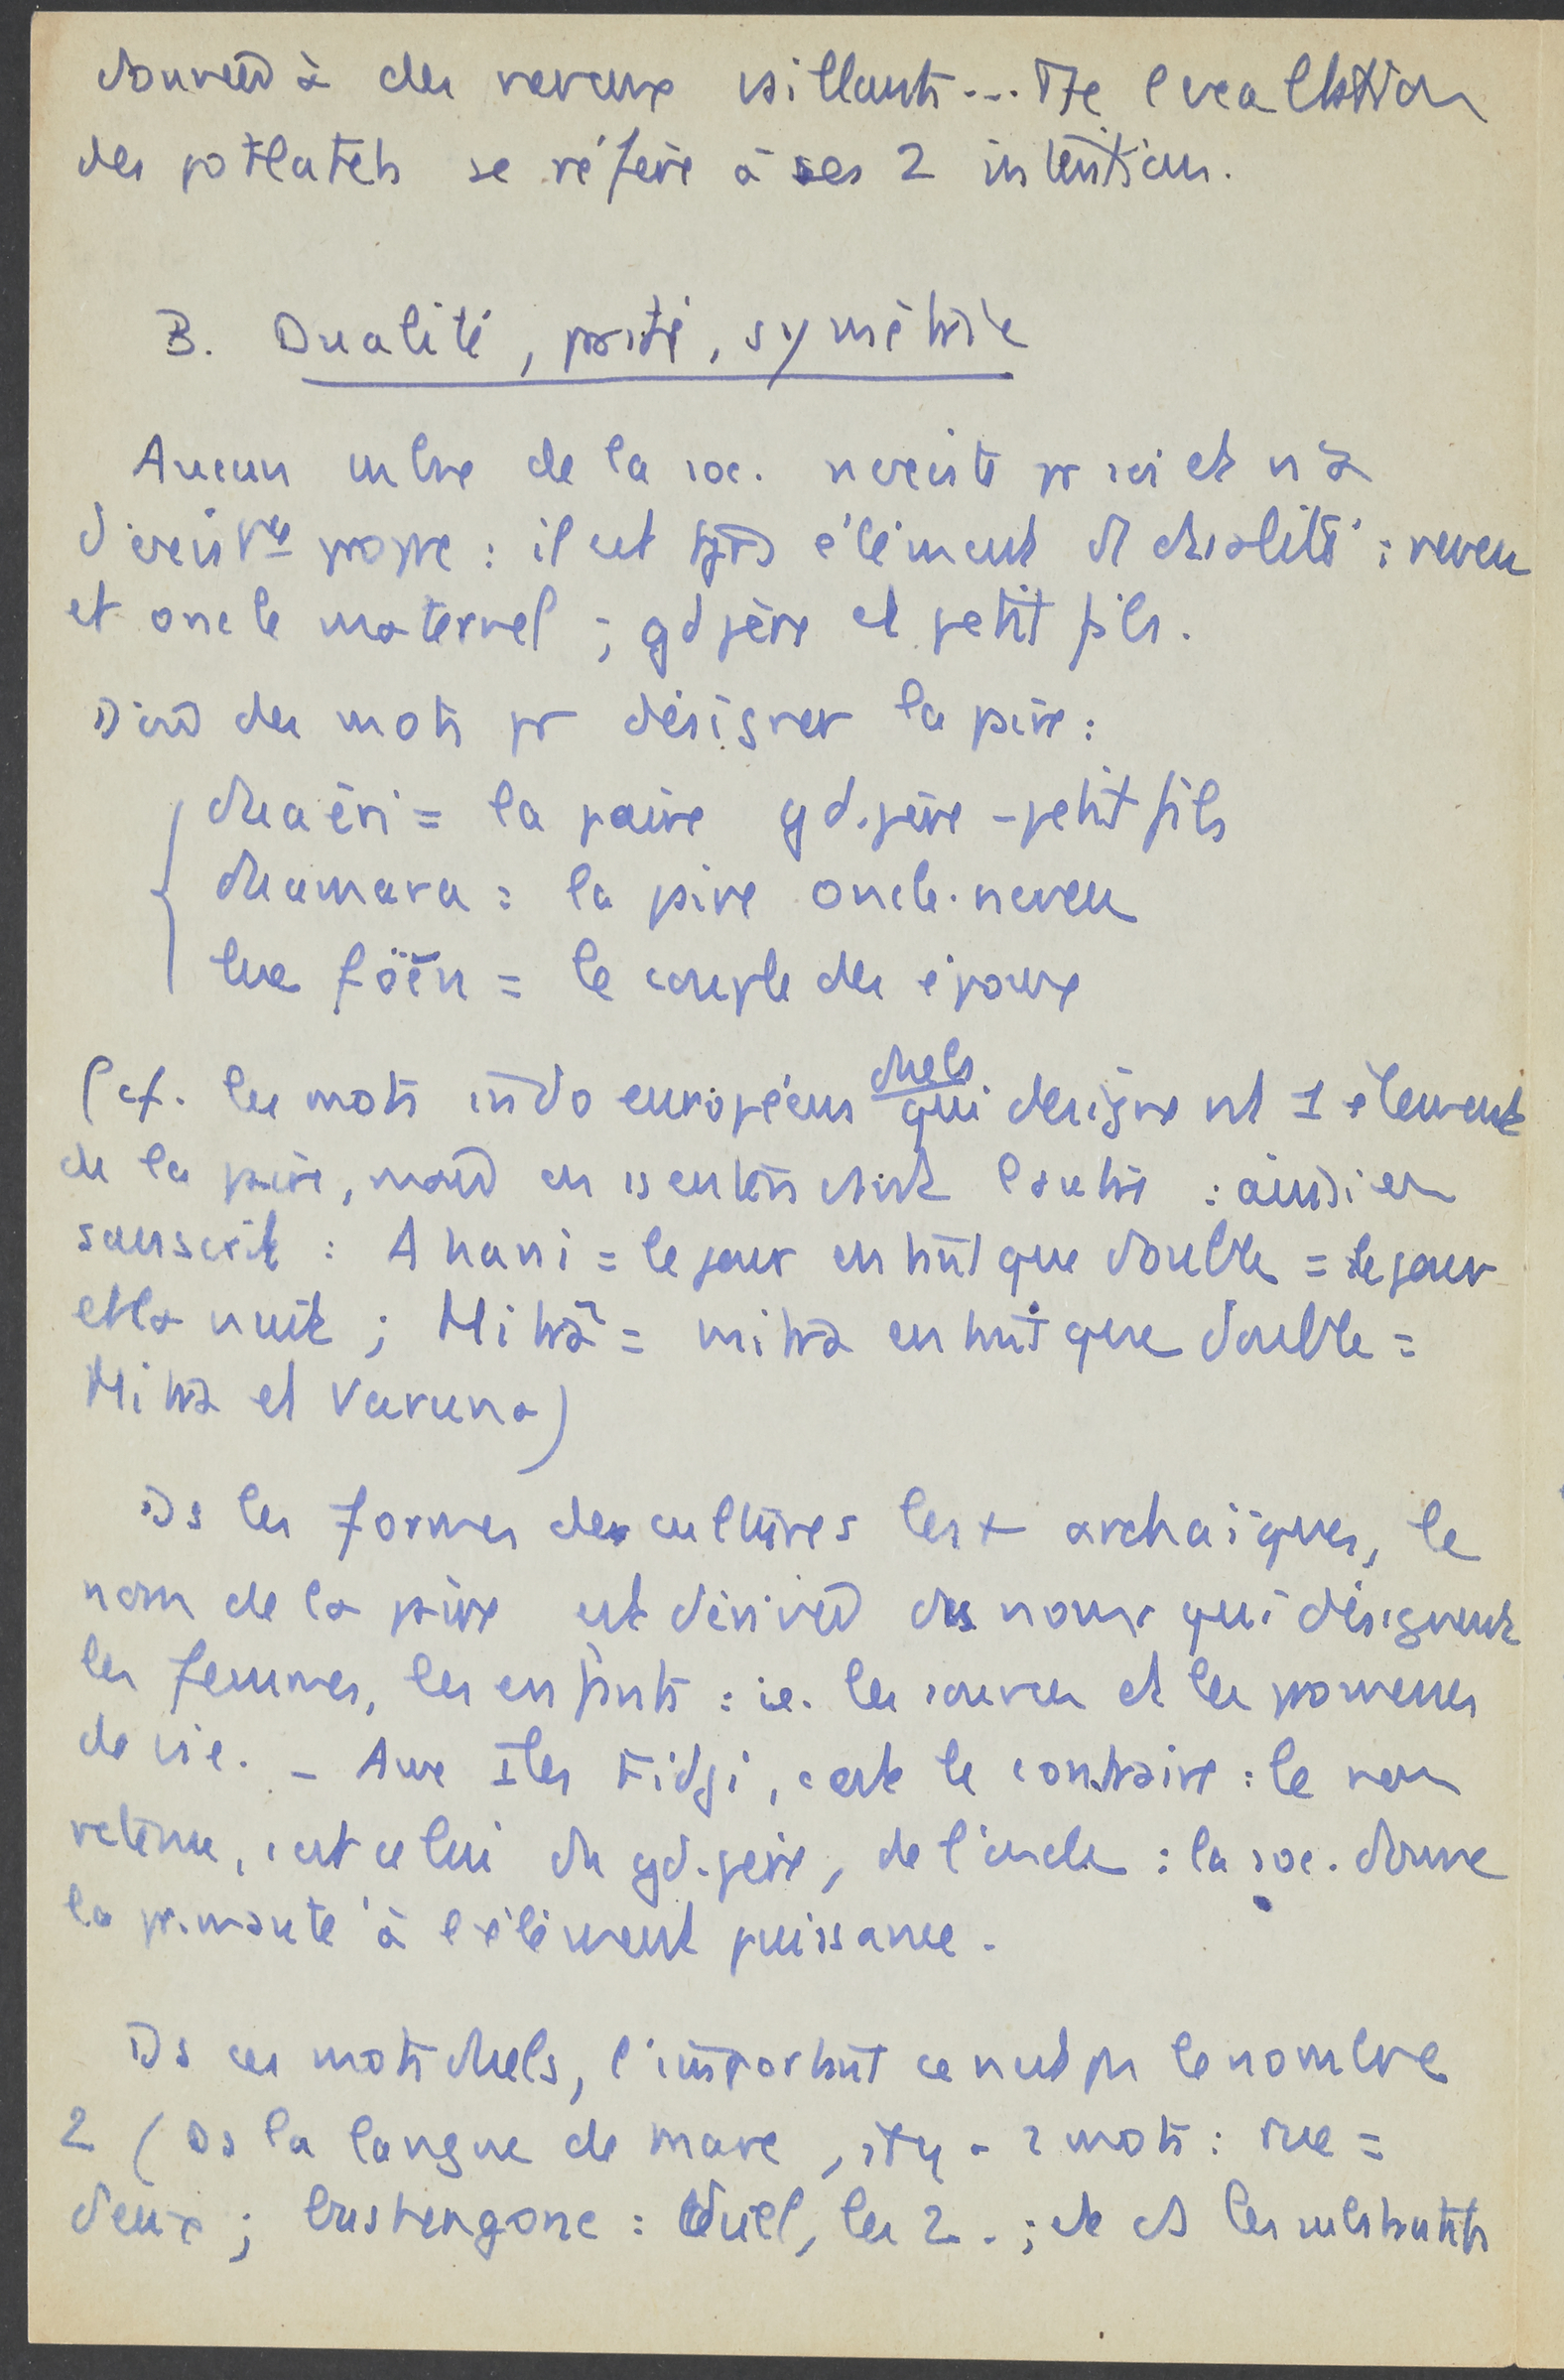 donner à des neveux vaillants... Tte l'exaltation
des potlatch se réfère à ses 2 intentions.
B. Dualité, parité, symétrie
Aucun mbre de la soc. n'existe pr soi et n'a
d'existce propre : il est tjrs élément de dualité : neveu
et oncle maternel ; gd père et petit fils.
D'où des mots pr désigner la paire :
duaeri = la paire gd.père - petit fils
duamara = la paire oncle.neveu
lue föen = le couple des époux
(cf. les mots indo européens duels qui désignent 1 élément
de la paire, mais en sentendant l'autre : ainsi en
sanscrit : Ahani = le jour en tant que double = le jour
et la nuit ; Mitrā = mitra en tant que double =
Mitra et Varuna)
Ds les formes des cultures les + archaïques, le
nom de la paire est dérivé des noms qui désignent
les femmes, les enfants : i.e. les sources et les promesses
de vie. - Aux Iles Fidji, c'est le contraire : le nom
retenu, c'est celui du gd.père, de l'oncle : la soc. donne
la primauté à l'élément puissance.
Ds ces mots duels, l'important ce n'est pas le nombre
2 (Ds la langue de mare, il y a 2 mots : rue =
deux ; bushengone : duel, les 2 . ; et ds les substantifs